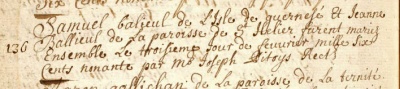 Six Cents nonante
Samuel balieul de L'isle de guernesé et Jeanne
136 Ballieul de La paroisse de St Helier furent mariés
Ensemble Le troisieme Jour de feuurier mille six
Cents nonante par mr Joseph Pitoys Rectr
gallichan de La paroisse de La ternité